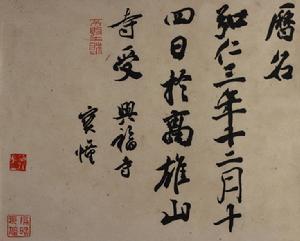 曆名
弘仁三年十二月十
四日於高雄山
寺受 興福寺